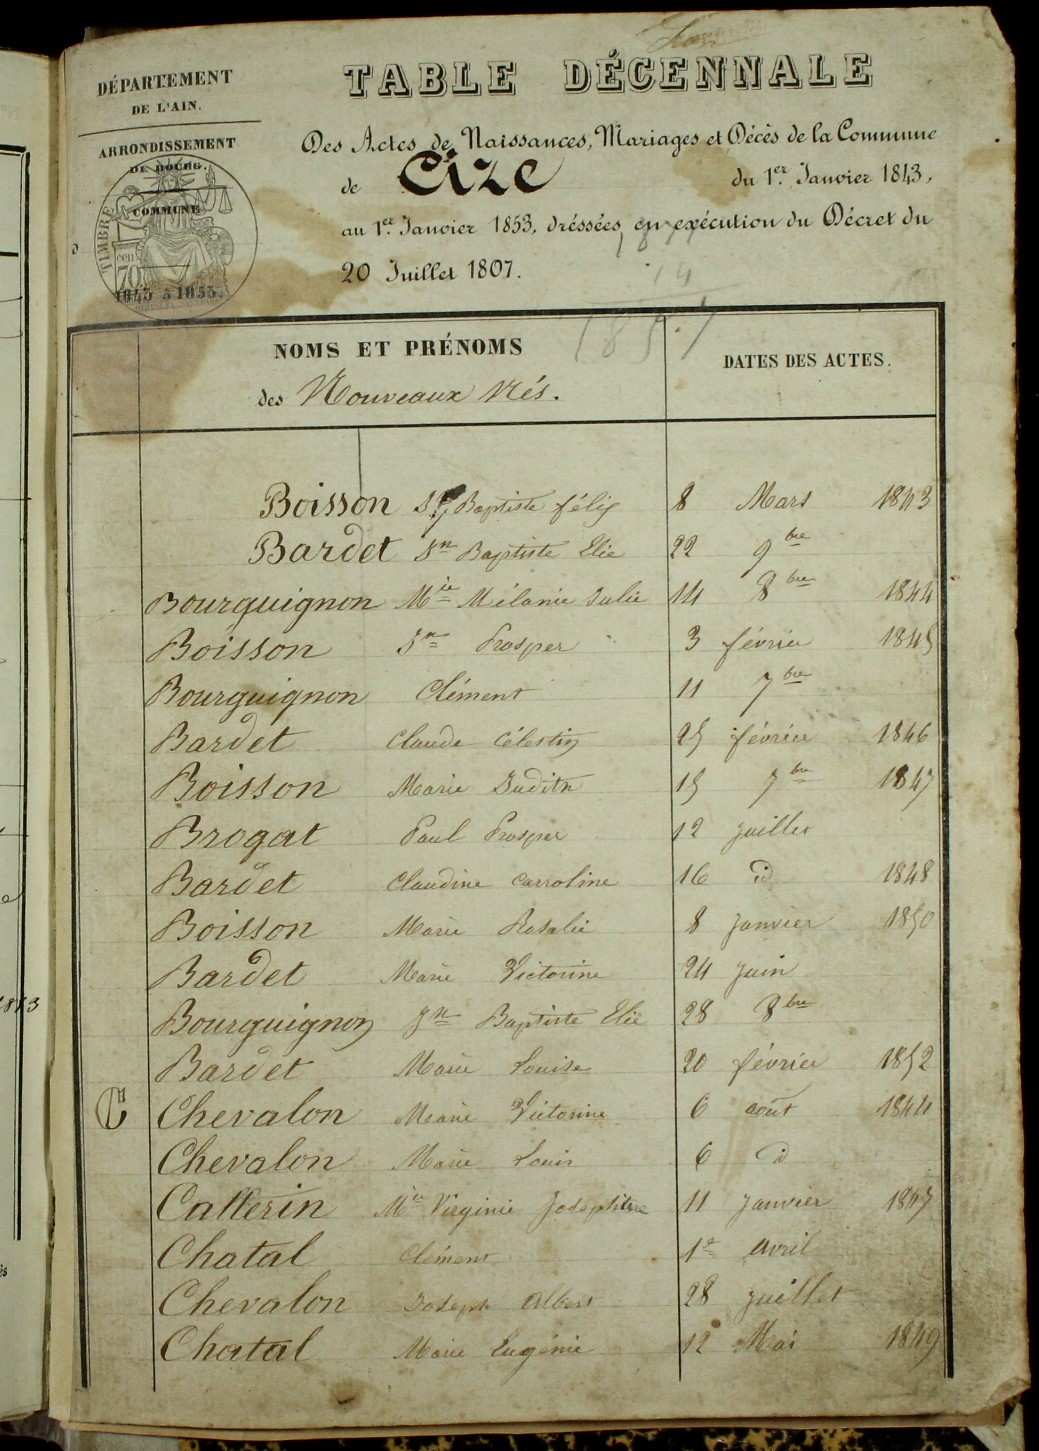 DÉPARTEMENT
DE L'AIN.
ARRONDISSEMENT
DE BOURG.
COMMUNE
TIMBRE
70
1843 à 1853.
TABLE DÉCENNALE
Des Actes de Naissances, Mariages et Décès de la Commune
de Cize du 1er Janvier 1843,
au 1er Janvier 1853, dréssées en exécution du Décret du
20 Juillet 1807.
NOMS ET PRÉNOMS
des Nouveaux Nés.
DATES DES ACTES.
Boisson Baptiste félix 8 Mars 1843
Bardet Jn Baptiste Elie 22 9bre
Bourguignon Mie Mélanie Julie 14 8bre 1844
Boisson Jn Prosper 3 février 1845
Bourguignon Clément 11 7bre
Bardet Claude Célestin 25 février 1846
Boisson Marie Judith 15 7bre 1847
Brogat Paul Prosper 12 juillet
Bardet Claudine Carroline 16 id 1848
Boisson Marie Rosalie 8 janvier 1850
Bardet Marie Victorine 24 juin
Bourguignon Jn Baptiste Elie 28 8bre
Bardet Marie Louise 20 février 1852
C Chevalon Marie Victorine 6 août 1844
Chevalon Marie Louis 6 id
Catterin Mie Virginie Joséphine 11 janvier 1847
Chatal Clément 1er avril
Chevalon Joseph Albert 28 juillet
Chatal Marie Eugénie 12 Mai 1849